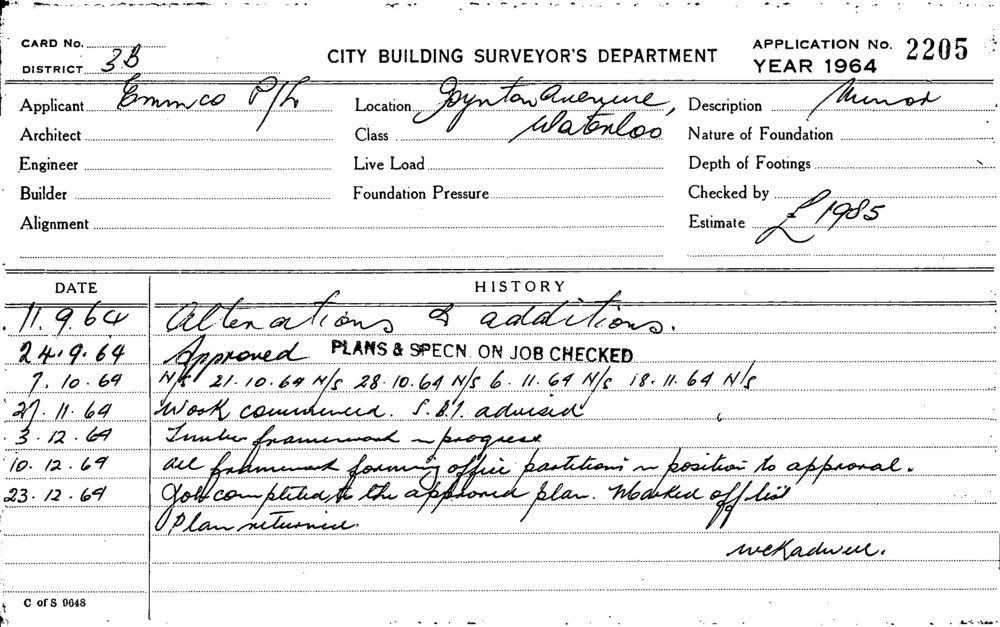 CARD No.
DISTRICT 3B
CITY BUILDING SURVEYOR'S DEPARTMENT
APPLICATION No. 2205
YEAR 1964
Applicant Emmco P/L
Location Joynton Avenue,
Waterloo
Description Minor
Architect
Class
Nature of Foundation
Engineer
Live Load
Depth of Footings
Builder
Foundation Pressure
Checked by
Alignment
Estimate £1985
DATE HISTORY
11.9.64 Alterations & additions.
24.9.64 Approved PLANS & SPECN. ON JOB CHECKED
7.10.64 N/S 21.10.64 N/S 28.10.64 N/S 6.11.64 N/S 18.11.64 N/S
27.11.64 Work commenced. S.B.I. advised
3.12.64 Timber framework in progress
10.12.64 all framework forming office partitions in position to approval.
23.12.64 Job completed to the approved plan. Marked off list
Plan returned.
C of S 9648